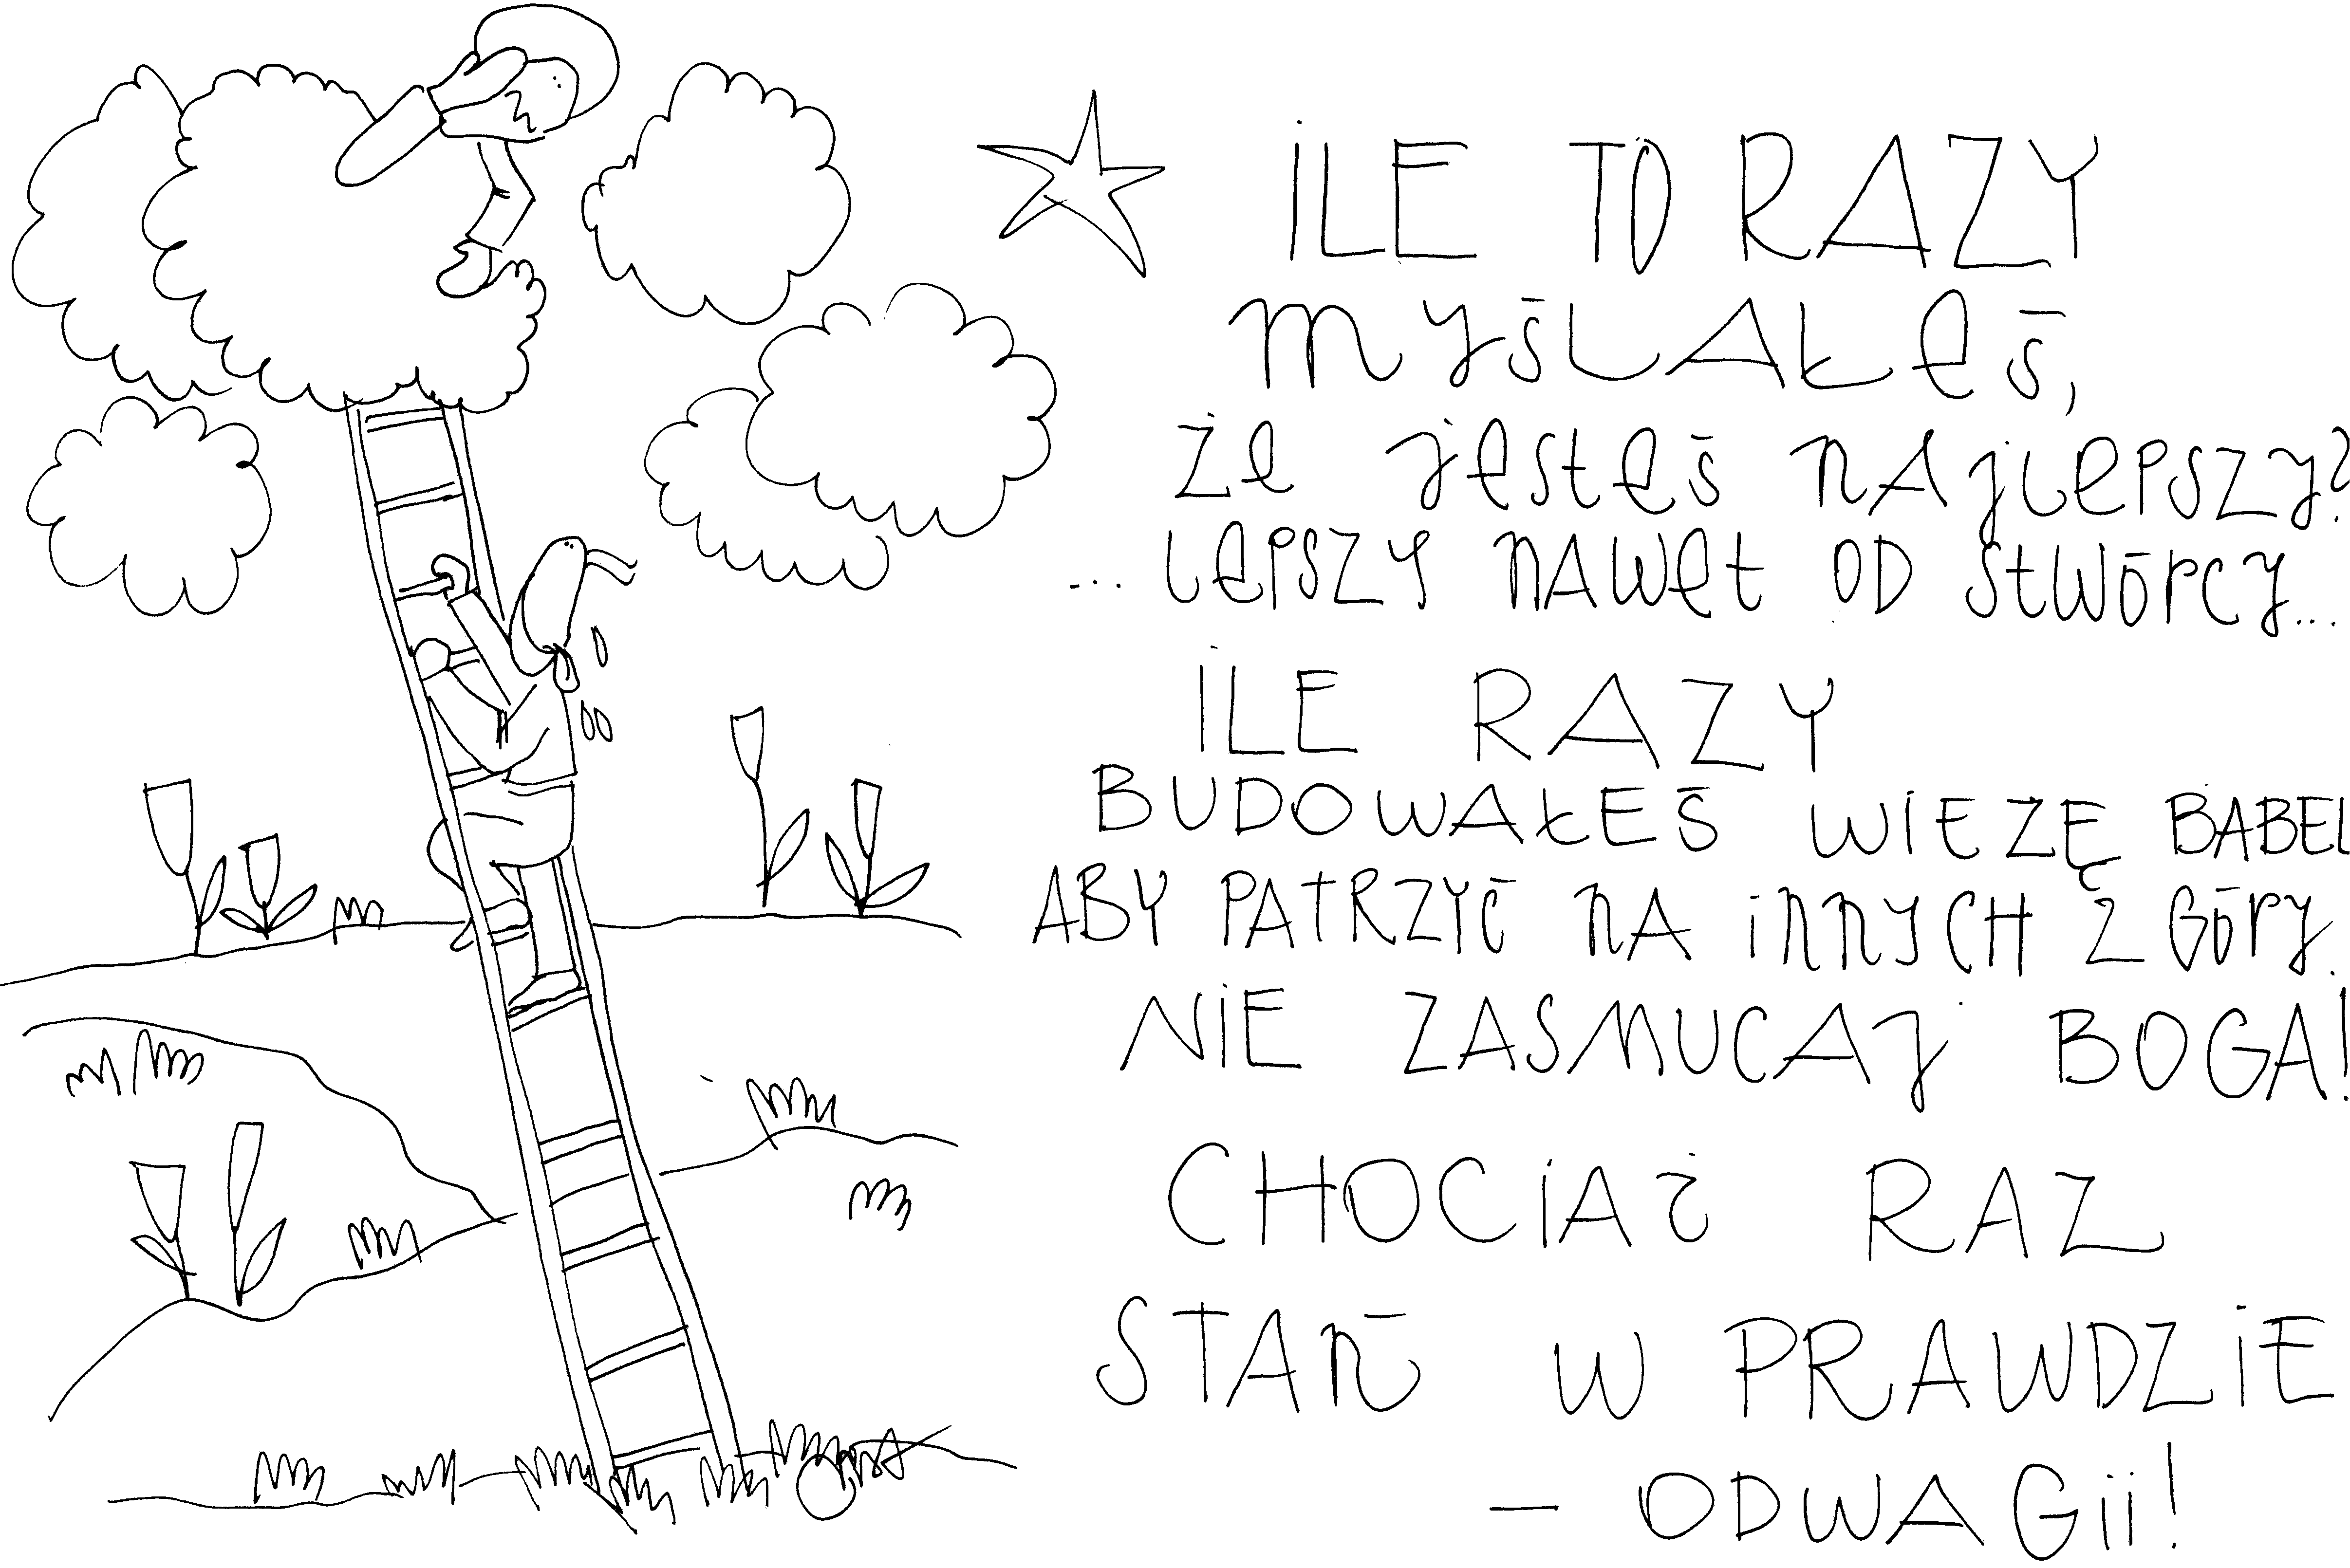 ILE TO RAZY
MYŚLAŁEŚ,
ŻE JESTEŚ NAJLEPSZY?
... LEPSZY NAWET OD STWÓRCY...
ILE RAZY
BUDOWAŁEŚ WIEZĘ BABEL
ABY PATRZYĆ NA INNYCH Z GÓRY.
NIE ZASMUCAJ BOGA!
CHOCIAŻ RAZ
STAŃ W PRAWDZIE
– ODWAGII!